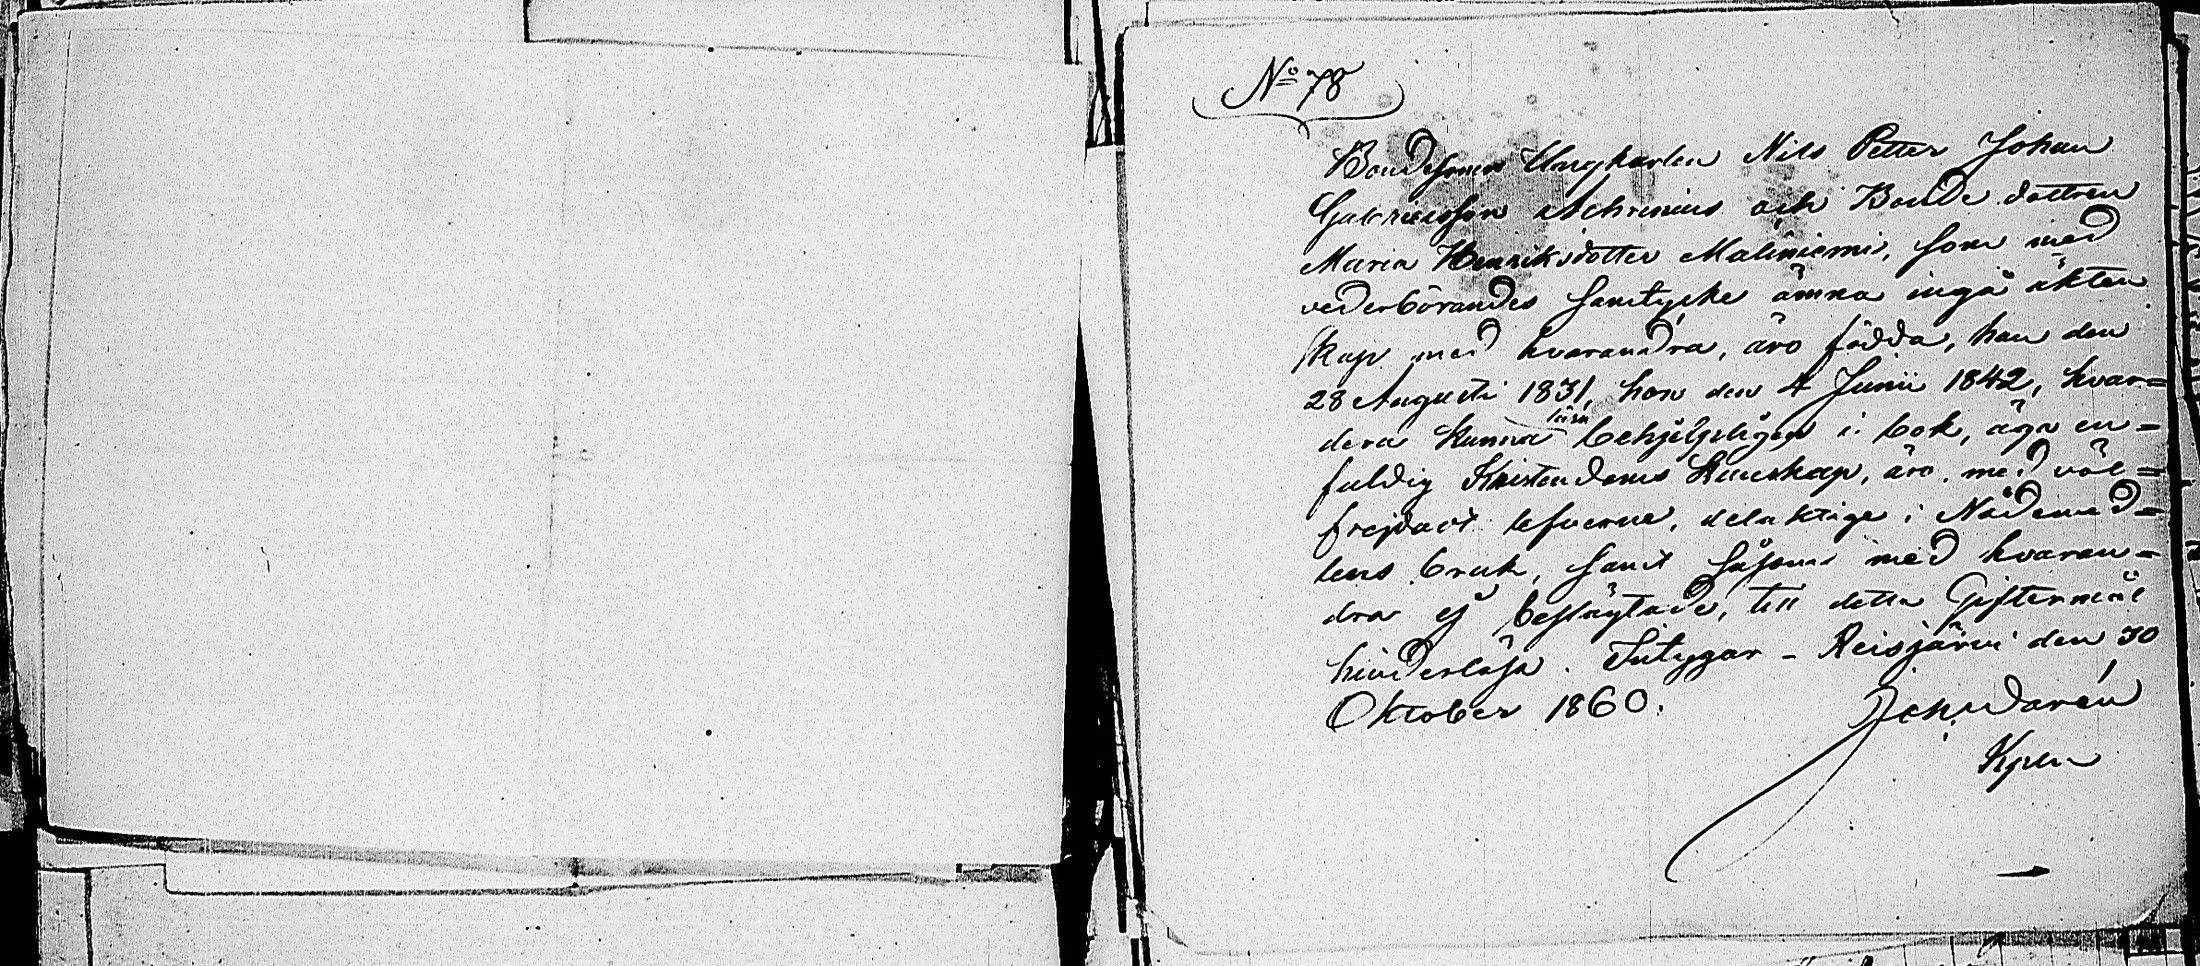 No 78
Bondesonen Ungkarlen Nils Petter Johan
Gabrielsson Achrenius och Bonde dottren
Maria Henriksdotter Maliniemi, som med
vederbörandes samtycke ämna ingå äkten
skap med hvarandra, äro födda, han den
28 Augusti 1831, hon den 4 Junii 1842, hvar=
dera kunna läsa behjelpligen i bok, äga en=
faldig Kristendoms kunskap, äro med väl=
frejdadt lefverne, delaktige i Nådemed=
lens bruk, samt såsom med hvaran=
dra ej beslägtade, till detta Giftermål
hinderlösa. Intygar - Reisjärvi den 30
Oktober 1860.
Joh. Darén
Kpln